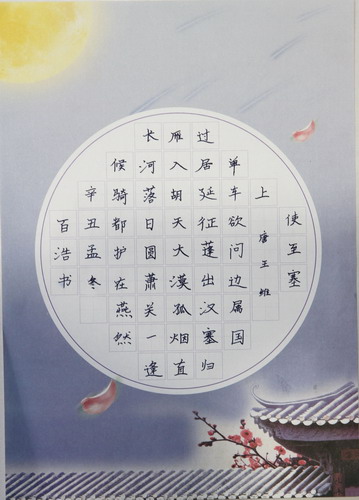 使至塞
上 唐 王维
单车欲问边属国
过居延征蓬出汉塞归
雁入胡天大漠孤烟直
长河落日圆萧关一逢
候骑都护在燕然
辛丑孟冬
百浩书